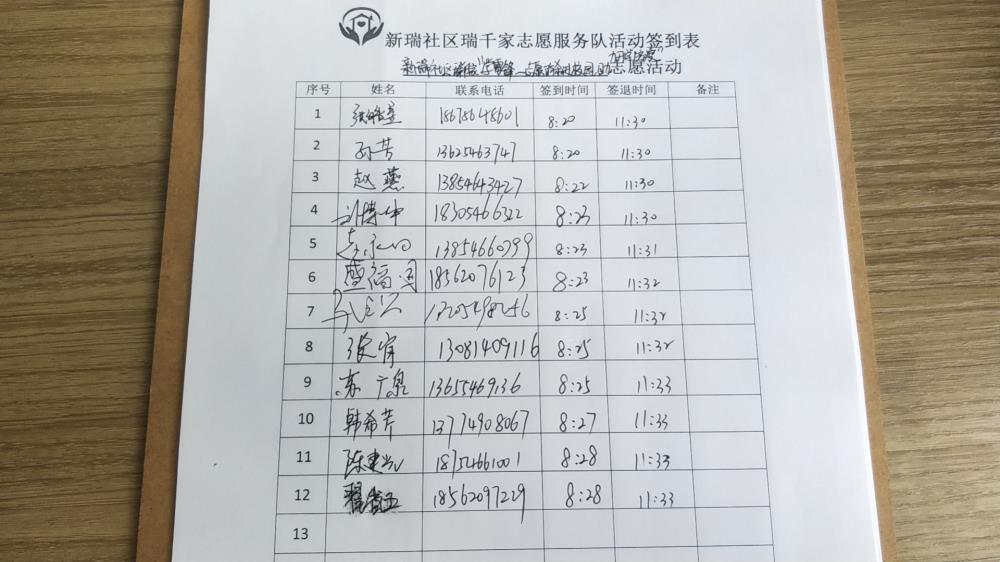 新瑞社区瑞千家志愿服务队活动签到表
新瑞社区 志愿活动
序号 姓名 联系电话 签到时间 签退时间 备注
1 18678648601 8:20 11:30
2 孙芳 13625463747 8:20 11:30
3 赵燕 13854643427 8:22 11:30
4 刘博中 18305466322 8:23 11:30
5 13854660799 8:23 11:31
6 盛福 18562076123 8:23 11:32
7 8:25 11:32
8 张宵 13081409116 8:25 11:32
9 苏广泉 13655469136 8:25 11:33
10 韩希芹 13774908067 8:27 11:33
11 陈建 18754661001 8:28 11:33
12 18562097229 8:28 11:33
13